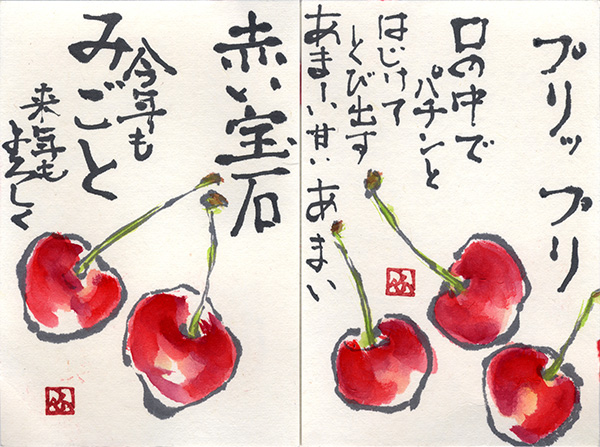 プリップリ
口の中で
パチンと
はじけて
とび出す
あまーい 甘い あまい
赤い宝石
今年も
みごと
来年も
よろしく